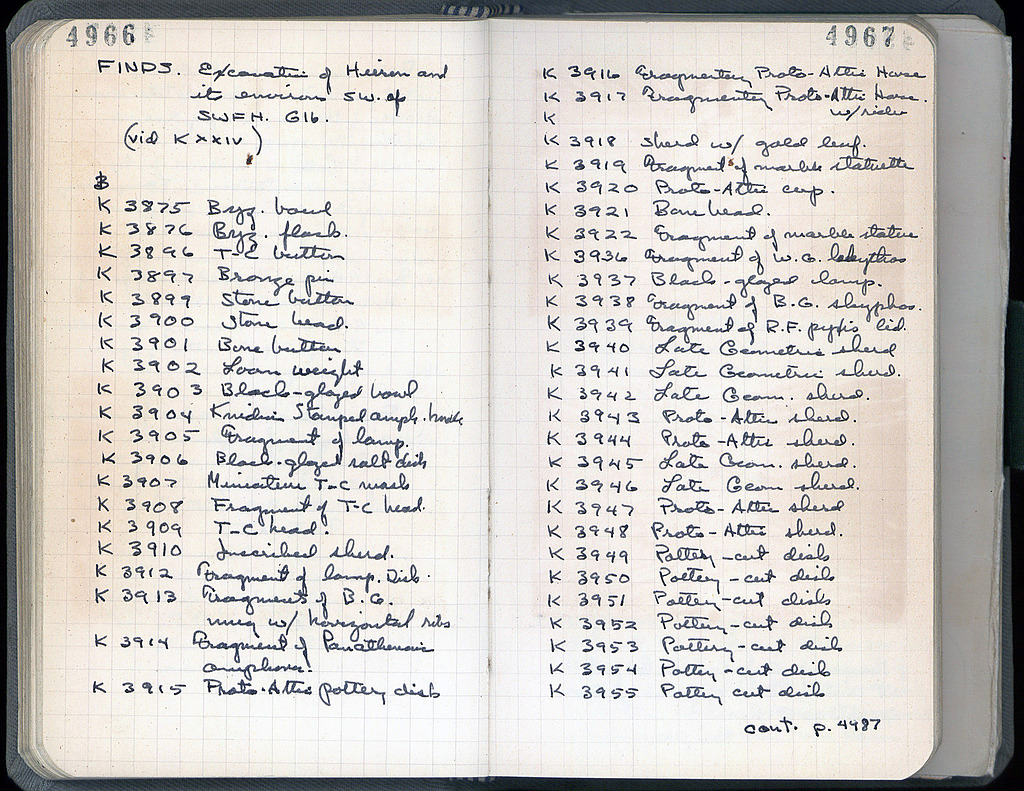 4966
FINDS. Excavation of Hieron and
its environs SW. of
SWFH. G16.
(vid K XXIV)
B
K 3875 Byz. bowl
K 3876 Byz. flask.
K 3896 T-C button
K 3897 Bronze pin
K 3899 Stone button
K 3900 Stone bead.
K 3901 Bone button
K 3902 Loom weight
K 3903 Black-glazed bowl
K 3904 Knidian Stamped amph. handle
K 3905 Fragment of lamp.
K 3906 Black-glazed salt dish
K 3907 Miniature T-C mask
K 3908 Fragment of T-C head.
K 3909 T-C head.
K 3910 Inscribed sherd.
K 3912 Fragment of lamp. Disk.
K 3913 Fragments of B.G.
mug w/ horizontal ribs
K 3914 Fragment of Panathenaic
amphora.
K 3915 Proto-Attic pottery disk
4967
K 3916 Fragmentary Proto-Attic Horse
K 3917 Fragmentary Proto-Attic Horse.
w/ rider
K
K 3918 Sherd w/ gold leaf.
K 3919 Fragment of marble statuette
K 3920 Proto-Attic cup.
K 3921 Bone bead.
K 3922 Fragment of marble statue
K 3936 Fragment of W.G. lekythos
K 3937 Black-glazed lamp.
K 3938 Fragment of B.G. skyphos.
K 3939 Fragment of R.F. pyxis lid.
K 3940 Late Geometric sherd
K 3941 Late Geometric sherd.
K 3942 Late Geom. sherd.
K 3943 Proto-Attic sherd.
K 3944 Proto-Attic sherd.
K 3945 Late Geom. sherd.
K 3946 Late Geom sherd.
K 3947 Proto-Attic sherd
K 3948 Proto-Attic sherd.
K 3949 Pottery-cut disk
K 3950 Pottery-cut disk
K 3951 Pottery-cut disk
K 3952 Pottery-cut disk
K 3953 Pottery-cut disk
K 3954 Pottery-cut disk
K 3955 Pottery cut disk
cont. p. 4987